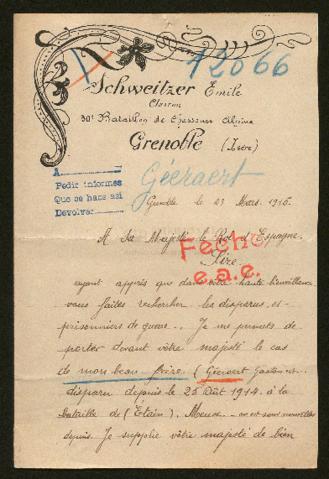 42066
Schweitzer Emile
Clairon
30e Bataillon de Chasseurs Alpins
Grenoble (Isère)
A
Pedir informes
Que se hans asi
Devolver
Géeraert
Grenoble le 23 Mars 1916.
A Sa Majesté le Roi d'Espagne.
Fecho
Sire
e.a.e.
ayant appris que dans votre haute bienveillance
vous faites rechercher les disparus et
prisonniers de guerre. Je me permets de
porter devant votre majesté le cas
de mon beau frère (Géeraert Gaston
disparu depuis le 25 Août 1914 à la
Bataille de (Etain) Meuse. sans nouvelles
depuis. Je supplie votre majesté de bien